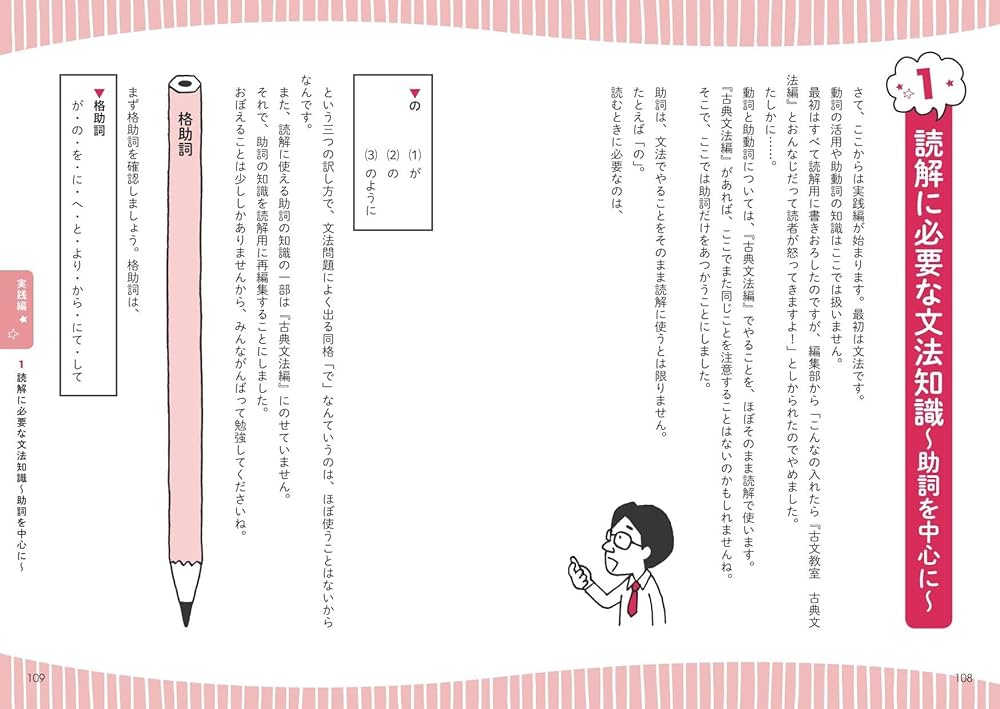 1
読解に必要な文法知識～助詞を中心に～
さて、ここからは実践編が始まります。最初は文法です。
動詞の活用や助動詞の知識はここでは扱いません。
最初はすべて読解用に書きおろしたのですが、編集部から「こんなの入れたら『古文教室　古典文
法編』とおんなじだって読者が怒ってきますよ！」としかられたのでやめました。
たしかに……。
動詞と助動詞については、『古典文法編』でやることを、ほぼそのまま読解で使います。
『古典文法編』があれば、ここでまた同じことを注意することはないのかもしれませんね。
そこで、ここでは助詞だけをあつかうことにしました。
助詞は、文法でやることをそのまま読解に使うとは限りません。
たとえば「の」。
読むときに必要なのは、
108
▼の
(1) が
(2) の
(3) のように
という三つの訳し方で、文法問題によく出る同格「で」なんていうのは、ほぼ使うことはないから
なんです。
また、読解に使える助詞の知識の一部は『古典文法編』にのせていません。
それで、助詞の知識を読解用に再編集することにしました。
おぼえることは少ししかありませんから、みんながんばって勉強してくださいね。
格助詞
まず格助詞を確認しましょう。格助詞は、
▼格助詞
が・の・を・に・へ・と・より・から・にて・して
実践編
1 読解に必要な文法知識～助詞を中心に～
109